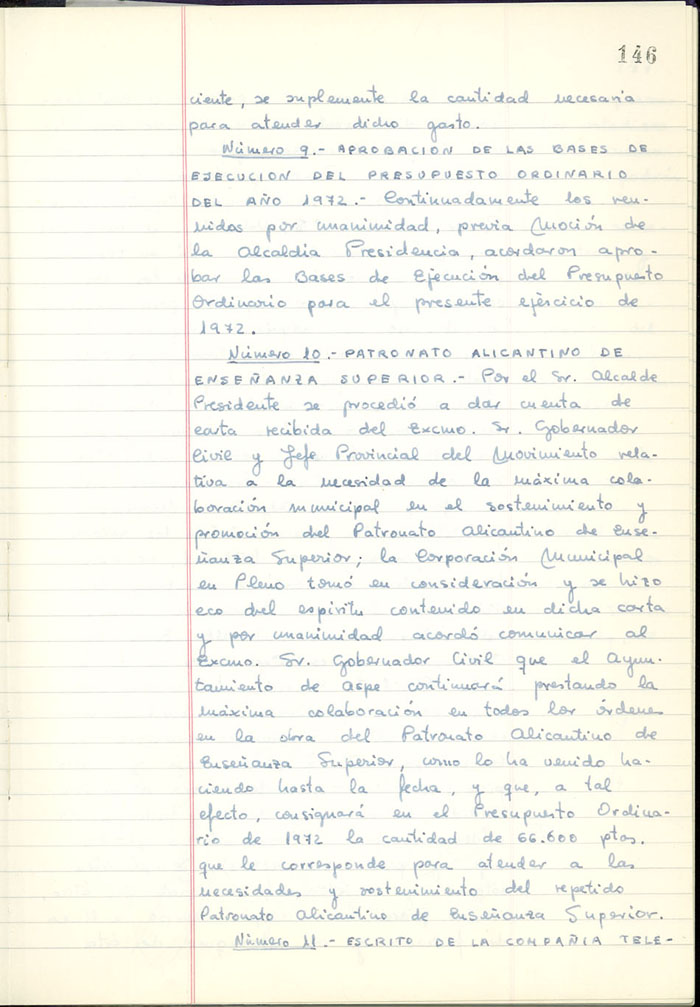 146
ciente, se suplemente la cantidad necesaria
para atender dicho gasto.
Número 9.- APROBACION DE LAS BASES DE
EJECUCION DEL PRESUPUESTO ORDINARIO
DEL AÑO 1972.- Continuadamente los reu-
nidos por unanimidad, previa Moción de
la Alcaldia Presidencia, acordaron apro-
bar las Bases de Ejecución del Presupuesto
Ordinario para el presente ejercicio de
1972.
Número 10.- PATRONATO ALICANTINO DE
ENSEÑANZA SUPERIOR.- Por el Sr. Alcalde
Presidente se procedió a dar cuenta de
carta recibida del Excmo. Sr. Gobernador
Civil y Jefe Provincial del Movimiento rela-
tiva a la necesidad de la máxima cola-
boración municipal en el sostenimiento y
promoción del Patronato Alicantino de Ense-
ñanza Superior; la Corporación Municipal
en Pleno tomó en consideración y se hizo
eco del espíritu contenido en dicha carta
y por unanimidad acordó comunicar al
Excmo. Sr. Gobernador Civil que el Ayun-
tamiento de Aspe continuará prestando la
máxima colaboración en todos los órdenes
en la obra del Patronato Alicantino de
Enseñanza Superior, como lo ha venido ha-
ciendo hasta la fecha, y que, a tal
efecto, consignará en el Presupuesto Ordina-
rio de 1972 la cantidad de 66.600 ptas.
que le corresponde para atender a las
necesidades y sostenimiento del repetido
Patronato Alicantino de Enseñanza Superior.
Número 11.- ESCRITO DE LA COMPAÑIA TELE-